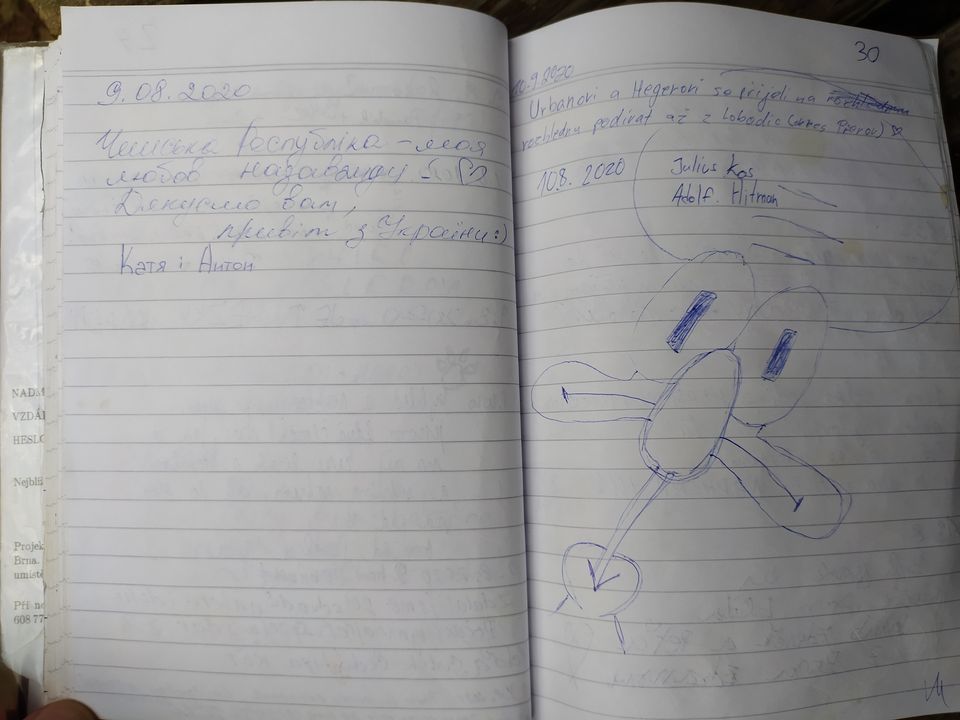 9.08.2020
Чешська Республіка - моя
любов назавжди
Дякуємо вам,
привіт з України :)
Катя і Антон
NADM
VZDÁL
HESLO
Nejbliž
Projek
Brna.
umístě
Při ne
608 77
30
10.9.2020
Urbanovi a Hegerovi se přijeli na
rozhlednu podívat až z Lobodic (okres Přerov)
10.8. 2020
Julius Kos
Adolf. Hitman